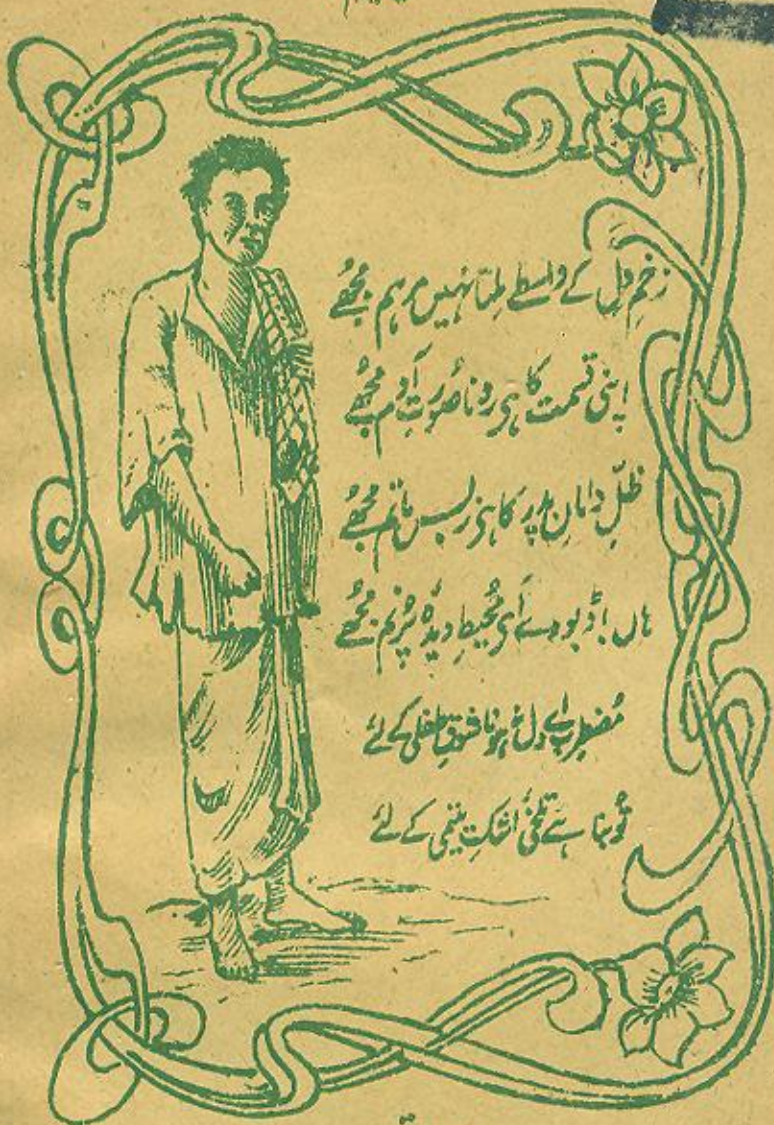 زخمِ دل کے واسطے ملتا نہیں مرہم مجھے
اپنی قسمت کا ہے رونا صورتِ آدم مجھے
ظلِّ دامانِ پدر کا ہے زبس ماتم مجھے
ہاں ڈبو دے اے مُحیطِ دیدۂ پُرنم مجھے
مُضطرب اے دل نہ ہونا ذوقِ طفلی کے لئے
تُو بنا ہے تلخیٔ اشکِ یتیمی کے لئے